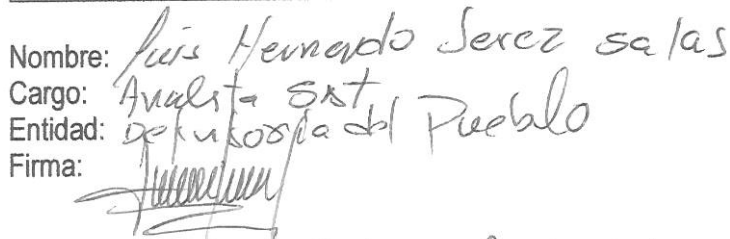 Nombre: Luis Hernando Jerez salas
Cargo: Analista SAT
Entidad: Defensoria del Pueblo
Firma: